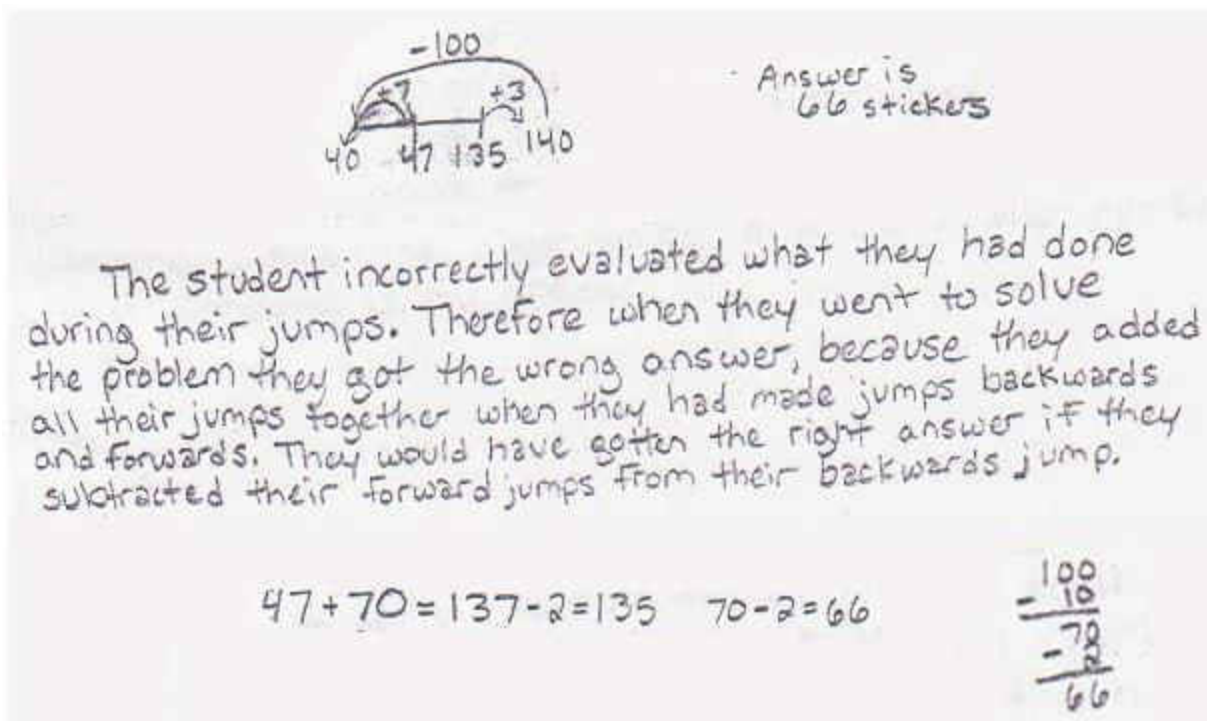 -100
+7
+3
40 47 135 140
Answer is
66 stickers
The student incorrectly evaluated what they had done
during their jumps. Therefore when they went to solve
the problem they got the wrong answer, because they added
all their jumps together when they had made jumps backwards
and forwards. They would have gotten the right answer if they
subtracted their forward jumps from their backwards jump.
47+70=137-2=135 70-2=66
100
- 10
70
- 2
66